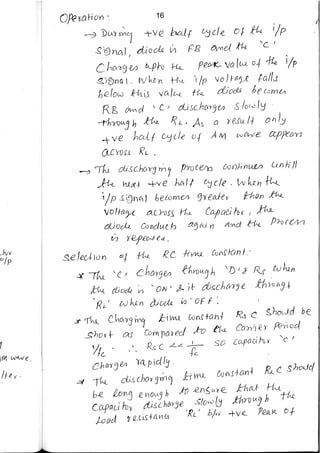 16
Operation :
→ During +ve half cycle of the i/p
signal, diode is FB and the 'C'
Charges upto the peak value of the i/p
signal. When the i/p voltage falls
below this value the diode becomes
RB and 'C' discharges slowly
through the RL. As a result only
+ve half cycle of AM wave appears
across RL.
→ The discharging process continues untill
the next +ve half cycle. When the
i/p signal becomes greater than the
voltage across the Capacitor, the
diode Conducts again and the process
is repeated.
Selection of the RC time constant:
* The 'C' Charges through 'D' & Rs when
the diode is 'ON' & it discharge through
'RL' when diode is 'OFF'.
* The Charging time constant Rs C should be
short as compared to the Carrier Period
1/fc. ∴ RsC << 1/fc so capacitor 'C'
Charges rapidly.
* The discharging time constant RL C should
be long enough to ensure that the
Capacitor discharge slowly through the
Load resistance 'RL' b/w +ve Peak of
o/p
AM wave.